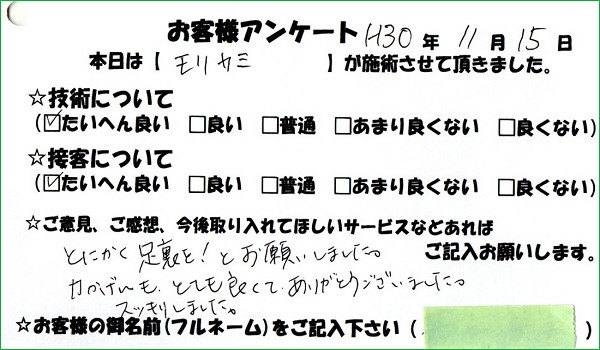 お客様アンケート H30 年 11 月 15 日
本日は【 モリカミ 】が施術させて頂きました。
☆技術について
(☑たいへん良い □良い □普通 □あまり良くない □良くない)
☆接客について
(☑たいへん良い □良い □普通 □あまり良くない □良くない)
☆ご意見、ご感想、今後取り入れてほしいサービスなどあれば
ご記入お願いします。
とにかく足裏を!とお願いしました。
力かげんも、とても良くて、ありがとうございました。
スッキリしました。
☆お客様の御名前(フルネーム)をご記入下さい( )